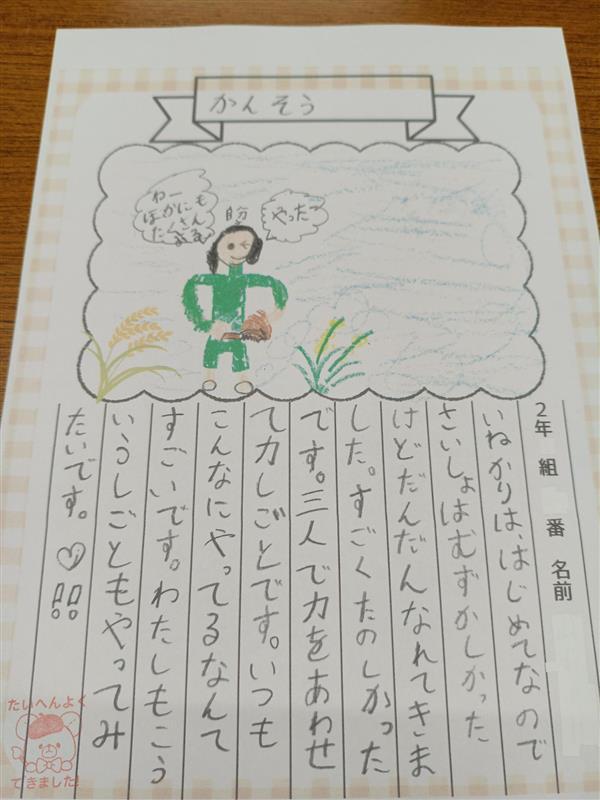 かんそう
わー
ほかにも
たくさん
ある
やったー
2年 組 番 名前
いねかりは、はじめてなので
さいしょはむずかしかった
けどだんだんなれてきま
した。すごくたのしかった
です。三人で力をあわせ
て力しごとです。いつも
こんなにやってるなんて
すごいです。わたしもこう
いうしごともやってみ
たいです。♡!!
たいへんよく
できました!